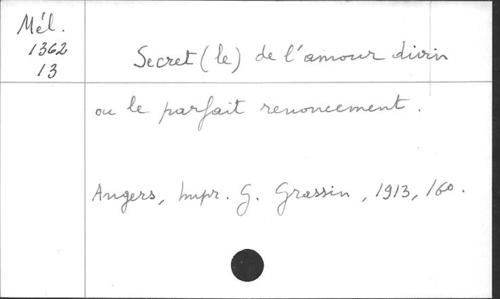 Mél.
1362
13
Secret (le) de l'amour divin
ou le parfait renoncement.
Angers, Impr. G. Grassin, 1913, 160.